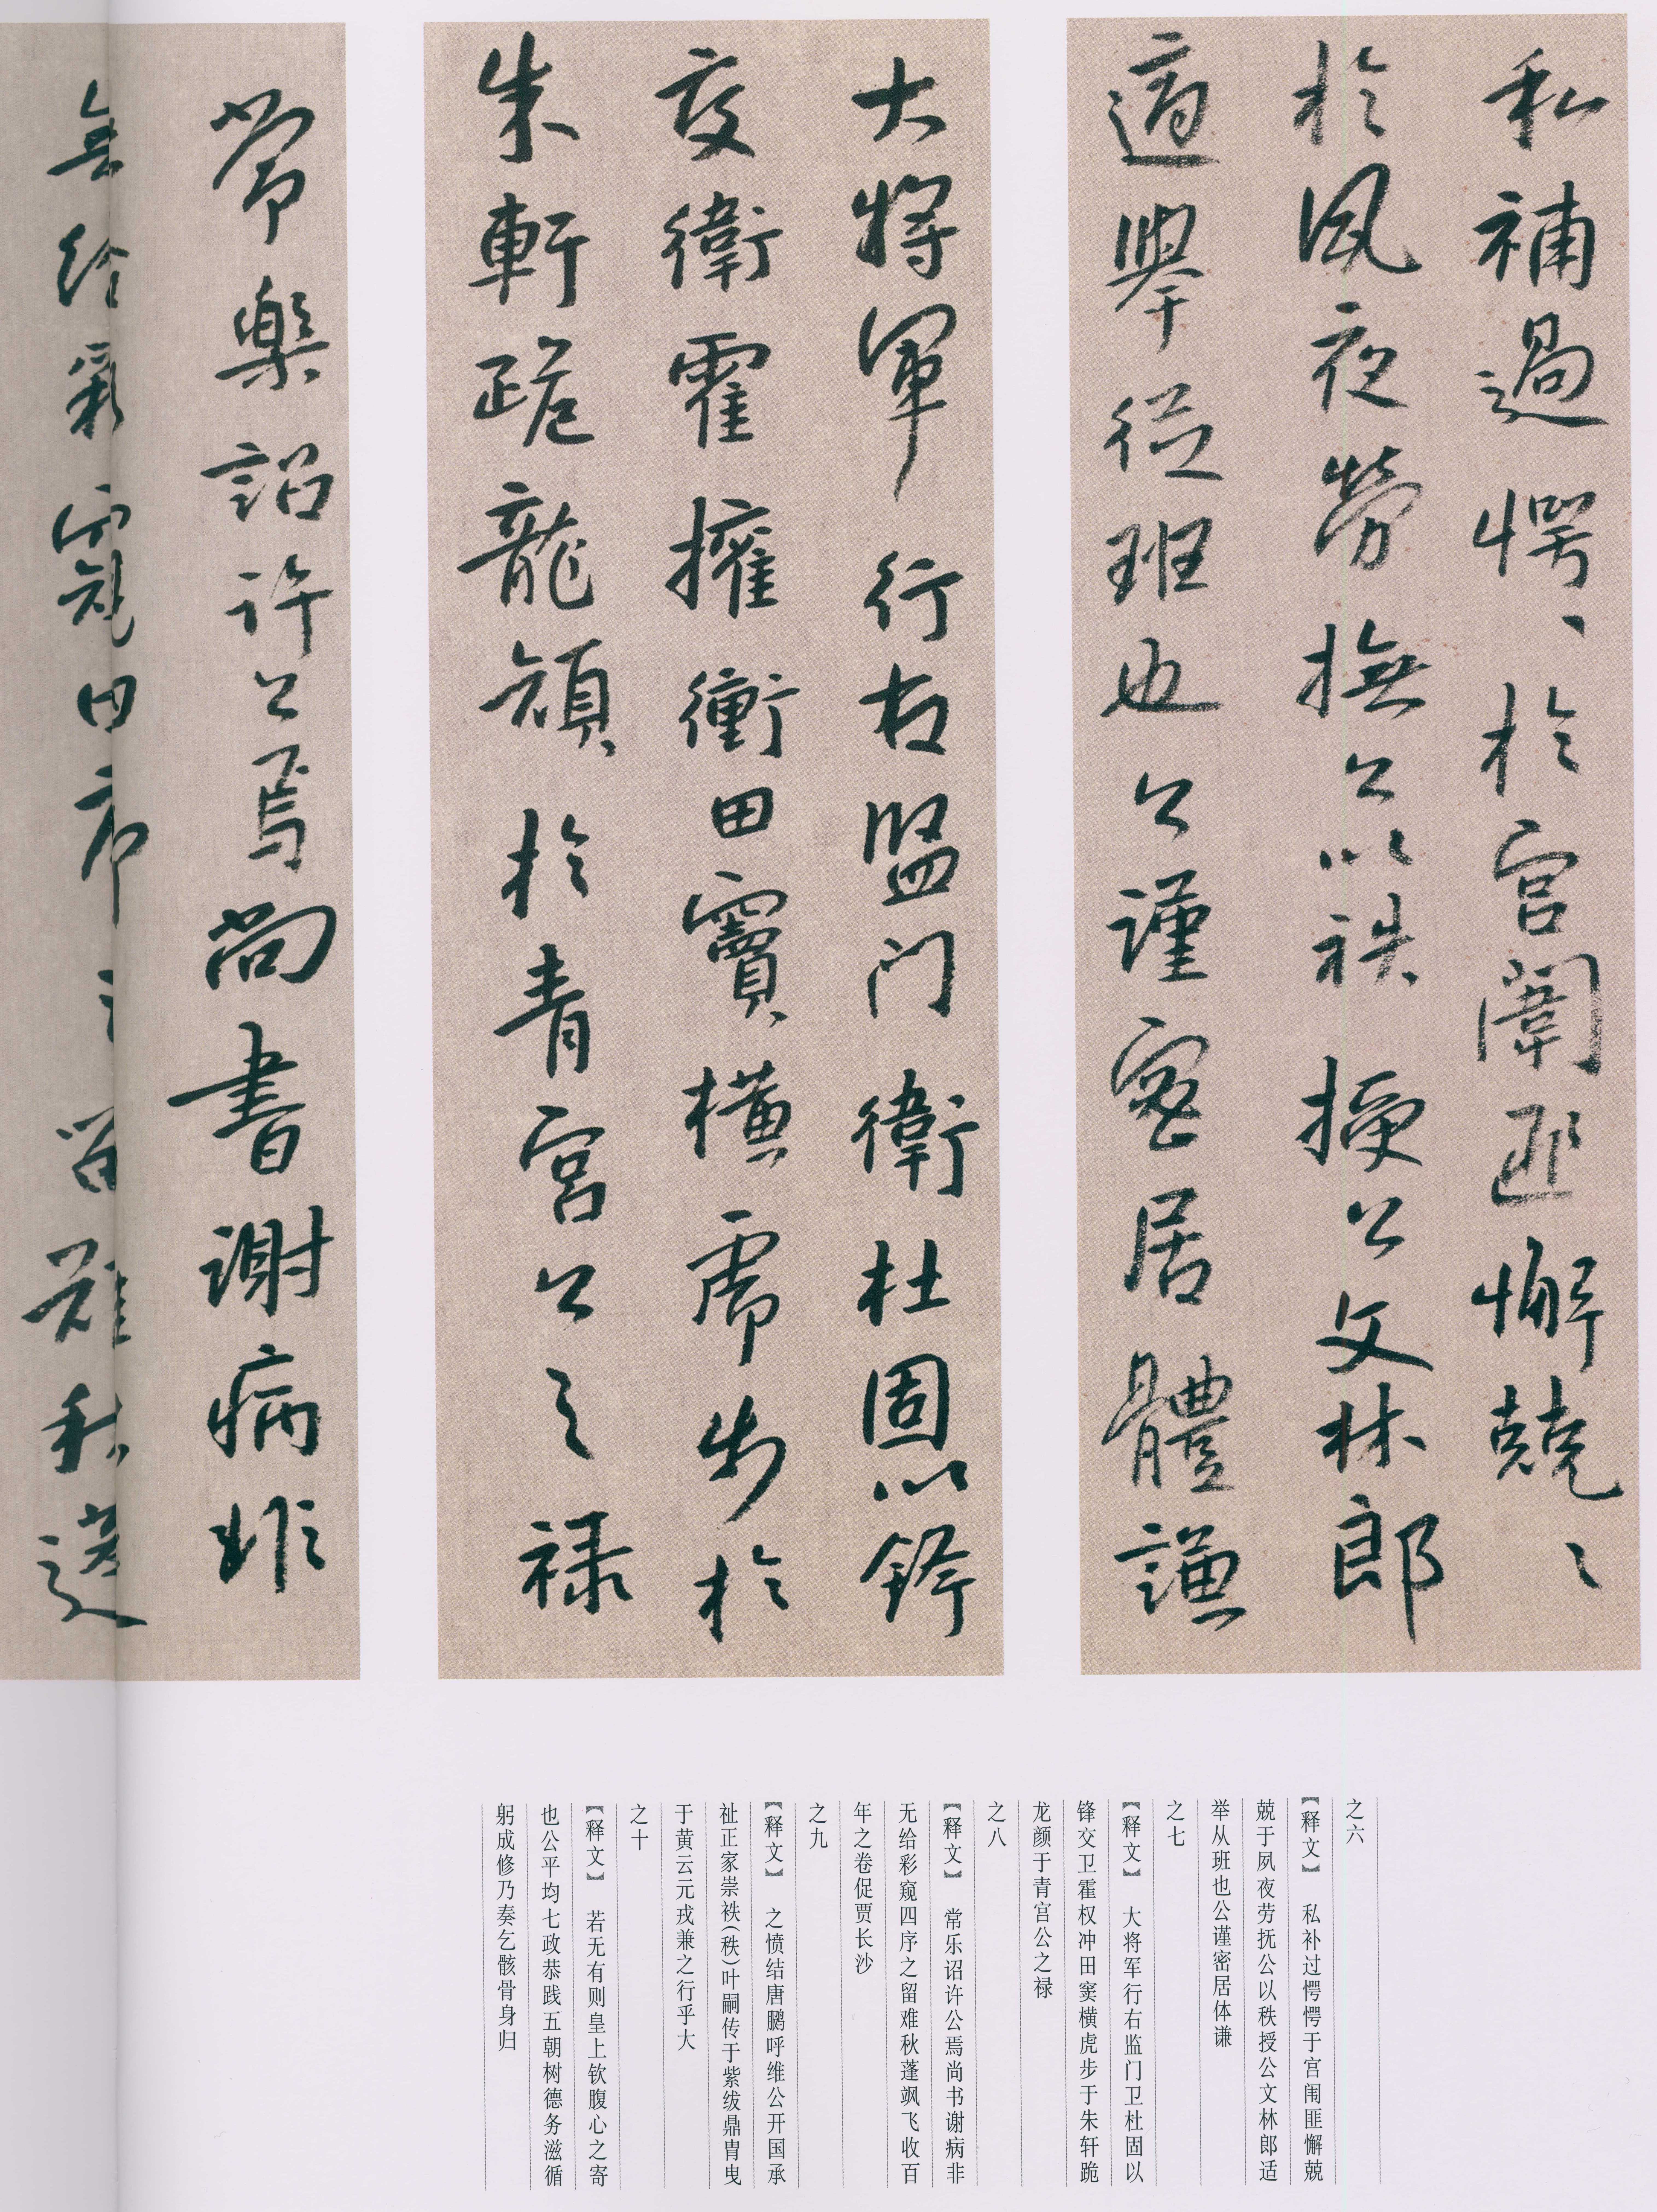 私補過愕、於宮闈匪懈兢ミ
於夙夜勞撫公以袟授公文林郎
適舉從班也公謹密居體謙
大將軍行右監门衛杜固以鋒
交衛霍擁衝田竇橫虎步於
朱軒跪龍顏於青宮公之禄
常樂詔許公焉尚書謝病非
無給彩窺四序之留難秋蓬
之六
【释文】 私补过愕愕于宫闱匪懈兢
兢于夙夜劳抚公以秩授公文林郎适
举从班也公谨密居体谦
之七
【释文】 大将军行右监门卫杜固以
锋交卫霍权冲田窦横虎步于朱轩跪
龙颜于青宫公之禄
之八
【释文】 常乐诏许公焉尚书谢病非
无给彩窥四序之留难秋蓬飒飞收百
年之卷促贾长沙
之九
【释文】 之愤结唐鹏呼维公开国承
祉正家崇袟(秩)叶嗣传于紫绂鼎胄曳
于黄云元戎兼之行乎大
之十
【释文】 若无有则皇上钦腹心之寄
也公平均七政恭践五朝树德务滋循
躬成修乃奏乞骸骨身归